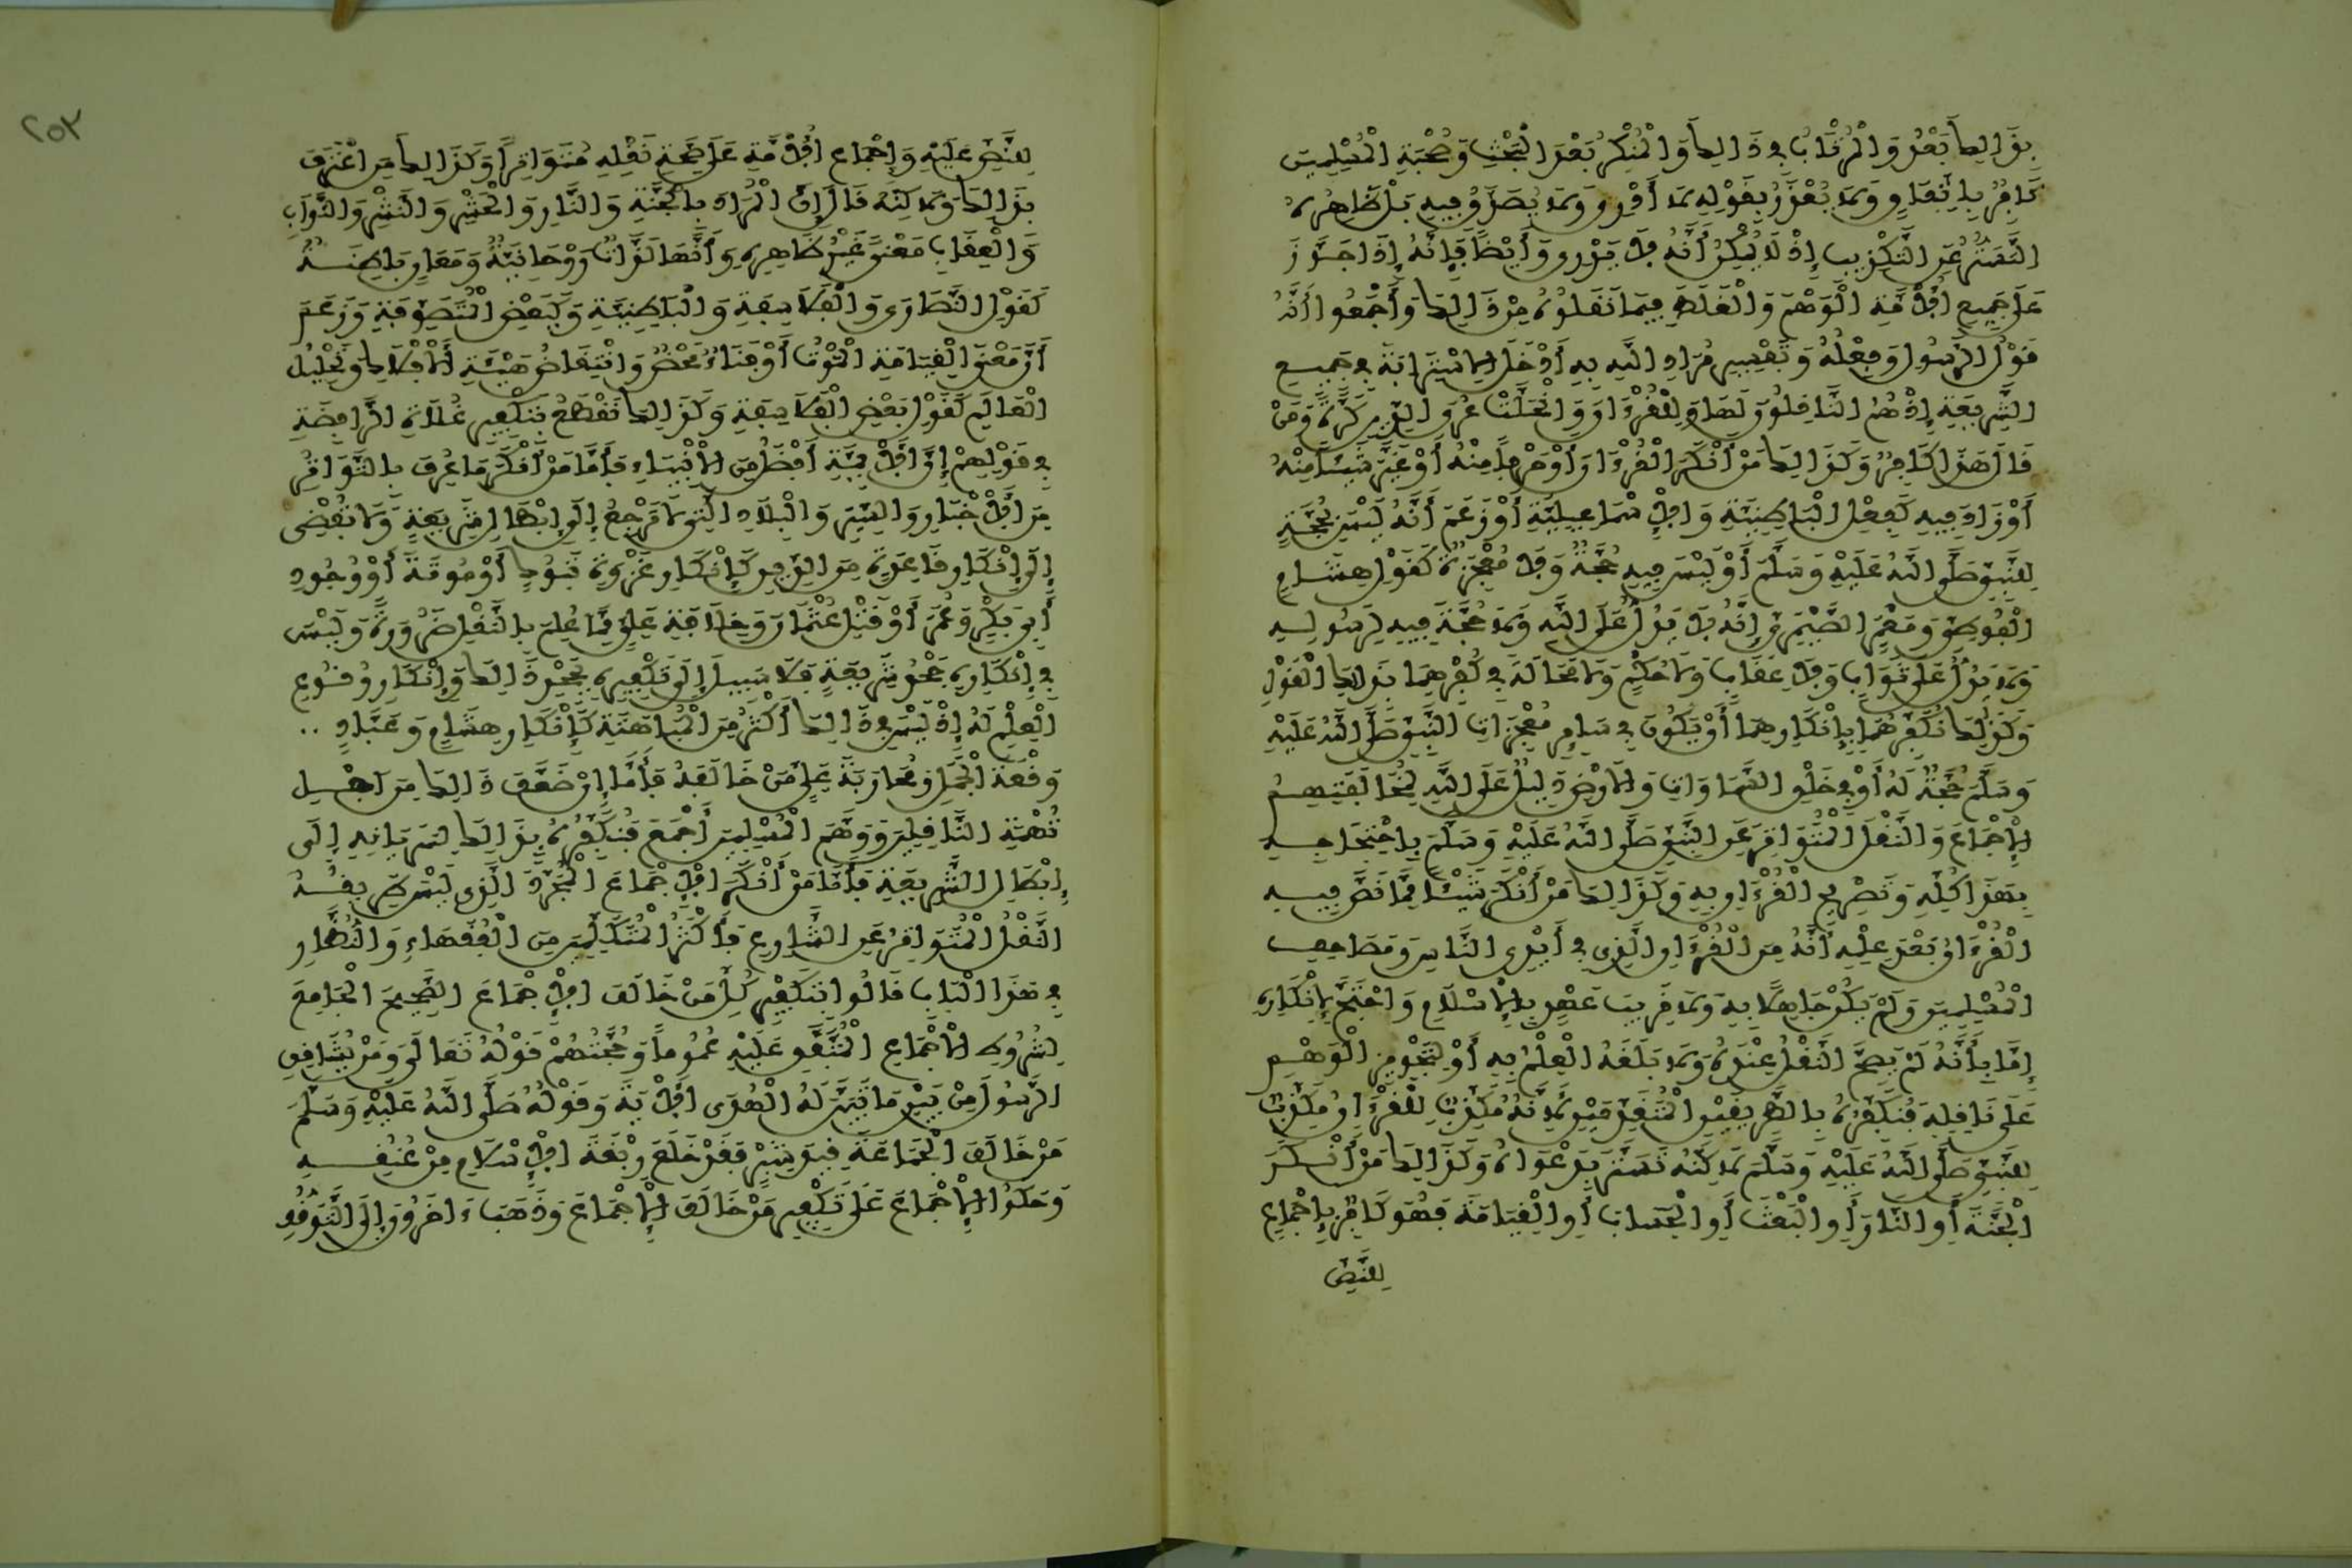 بِذَالِكَ بَعْدُ وَالْمُرْتَابُ فِي ذَالِكَ وَالْمُنْكِرُ بَعْدَ الْبَحْثِ وَصُحْبَةِ الْمُسْلِمِينَ
كَافِرٌ بِاتِّفَاقٍ وَلَا يُعْذَرُ بِقَوْلِهِ لَا أَدْرِي وَلَا يُصَدَّقُ فِيهِ بَلْ ظَاهِرُهُ
التَّسَتُّرُ عَنِ التَّكْذِيبِ إِذْ لَا يُمْكِنُ أَنَّهُ لَا يَدْرِي وَأَيْضًا فَإِنَّهُ إِذَا جَوَّزَ
عَلَى جَمِيعِ الْأُمَّةِ الْوَهْمَ وَالْغَلَطَ فِيمَا نَقَلُوهُ مِنْ ذَالِكَ وَأَجْمَعُوا أَنَّهُ
قَوْلُ الرَّسُولِ وَفِعْلُهُ وَتَفْسِيرُ مُرَادِ اللَّهِ بِهِ أَدْخَلَ الِاسْتِرَابَةَ فِي جَمِيعِ
الشَّرِيعَةِ إِذْ هُمُ النَّاقِلُونَ لَهَا وَلِلْقُرْءَانِ وَانْحَلَّتْ عُرَى الدِّينِ كَرَّةً وَمَنْ
قَالَ هَذَا كَافِرٌ وَكَذَالِكَ مَنْ أَنْكَرَ الْقُرْءَانَ أَوْ حَرْفًا مِنْهُ أَوْ غَيَّرَ شَيْئًا مِنْهُ
أَوْ زَادَ فِيهِ كَفِعْلِ الْبَاطِنِيَّةِ وَالْإِسْمَاعِيلِيَّةِ أَوْ زَعَمَ أَنَّهُ لَيْسَ بِحُجَّةٍ
لِلنَّبِيِّ صَلَّى اللَّهُ عَلَيْهِ وَسَلَّمَ أَوْ لَيْسَ فِيهِ حُجَّةٌ وَلَا مُعْجِزَةٌ كَقَوْلِ هِشَامٍ
الْفُوطِيِّ وَمَعْمَرٍ الصَّيْمَرِيِّ إِنَّهُ لَا يَدُلُّ عَلَى اللَّهِ وَلَا حُجَّةَ فِيهِ لِرَسُولِهِ
وَلَا يَدُلُّ عَلَى ثَوَابٍ وَلَا عِقَابٍ وَلَا حُكْمٍ وَلَا مَحَالَةَ فِي كُفْرِهِمَا بِذَالِكَ الْقَوْلِ
وَكَذَلِكَ نُكَفِّرُهُمَا بِإِنْكَارِهِمَا أَنْ يَكُونَ فِي سَائِرِ مُعْجِزَاتِ النَّبِيِّ صَلَّى اللَّهُ عَلَيْهِ
وَسَلَّمَ حُجَّةٌ لَهُ أَوْ فِي خَلْقِ السَّمَاوَاتِ وَالْأَرْضِ دَلِيلٌ عَلَى اللَّهِ لِمُخَالَفَتِهِمُ
الْإِجْمَاعَ وَالنَّقْلَ الْمُتَوَاتِرَ عَنِ النَّبِيِّ صَلَّى اللَّهُ عَلَيْهِ وَسَلَّمَ بِاحْتِجَاجِهِ
بِهَذَا كُلِّهِ وَتَصْرِيحِ الْقُرْءَانِ بِهِ وَكَذَالِكَ مَنْ أَنْكَرَ شَيْئًا مِمَّا نَصَّ فِيهِ
الْقُرْءَانُ بَعْدَ عِلْمِهِ أَنَّهُ مِنَ الْقُرْءَانِ الَّذِي فِي أَيْدِي النَّاسِ وَمَصَاحِفِ
الْمُسْلِمِينَ وَلَمْ يَكُنْ جَاهِلًا بِهِ وَلَا قَرِيبَ عَهْدٍ بِالْإِسْلَامِ وَاحْتَجَّ لِإِنْكَارِهِ
إِمَّا بِأَنَّهُ لَمْ يَصِحَّ النَّقْلُ عِنْدَهُ وَلَا بَلَغَهُ الْعِلْمُ بِهِ أَوْ لِتَجْوِيزِ الْوَهْمِ
عَلَى نَاقِلِهِ فَنُكَفِّرُهُ بِالطَّرِيقَيْنِ الْمُتَقَدِّمَيْنِ لِأَنَّهُ مُكَذِّبٌ لِلْقُرْءَانِ مُكَذِّبٌ
لِلنَّبِيِّ صَلَّى اللَّهُ عَلَيْهِ وَسَلَّمَ لَاكِنَّهُ تَسَتَّرَ بِدَعْوَاهُ وَكَذَالِكَ مَنْ أَنْكَرَ
الْجَنَّةَ أَوِ النَّارَ أَوِ الْبَعْثَ أَوِ الْحِسَابَ أَوِ الْقِيَامَةَ فَهُوَ كَافِرٌ بِإِجْمَاعٍ
لِلنَّصِّ
٢٥٣
لِلنَّصِّ عَلَيْهِ وَإِجْمَاعِ الْأُمَّةِ عَلَى صِحَّةِ نَقْلِهِ مُتَوَاتِرًا وَكَذَالِكَ مَنِ اعْتَرَفَ
بِذَالِكَ وَلَاكِنَّهُ قَالَ إِنَّ الْمُرَادَ بِالْجَنَّةِ وَالنَّارِ وَالْحَشْرِ وَالنَّشْرِ وَالثَّوَابِ
وَالْعِقَابِ مَعْنًى غَيْرُ ظَاهِرِهِ وَأَنَّهَا لَذَّاتٌ رُوحَانِيَّةٌ وَمَعَانٍ بَاطِنَةٌ
كَقَوْلِ النَّصَارَى وَالْفَلَاسِفَةِ وَالْبَاطِنِيَّةِ وَبَعْضِ الْمُتَصَوِّفَةِ وَزَعَمَ
أَنَّ مَعْنَى الْقِيَامَةِ الْمَوْتُ أَوْ فَنَاءٌ مَحْضٌ وَانْتِقَاضُ هَيْئَةِ الْأَفْلَاكِ وَتَحْلِيلُ
الْعَالَمِ كَقَوْلِ بَعْضِ الْفَلَاسِفَةِ وَكَذَالِكَ نَقْطَعُ بِتَكْفِيرِ غُلَاةِ الرَّافِضَةِ
فِي قَوْلِهِمْ إِنَّ الْأَئِمَّةَ أَفْضَلُ مِنَ الْأَنْبِيَاءِ فَأَمَّا مَنْ أَنْكَرَ مَا عُرِفَ بِالتَّوَاتُرِ
مِنَ الْأَخْبَارِ وَالسِّيَرِ وَالْبِلَادِ الَّتِي لَا تَرْجِعُ إِلَى إِبْطَالِ شَرِيعَةٍ وَلَا تُفْضِي
إِلَى إِنْكَارِ قَاعِدَةٍ مِنَ الدِّينِ كَإِنْكَارِ غَزْوَةِ تَبُوكَ أَوْ مُوتَةَ أَوْ وُجُودِ
أَبِي بَكْرٍ وَعُمَرَ أَوْ قَتْلِ عُثْمَانَ وَخِلَافَةِ عَلِيٍّ مِمَّا عُلِمَ بِالنَّقْلِ ضَرُورَةً وَلَيْسَ
فِي إِنْكَارِهِ جَحْدُ شَرِيعَةٍ فَلَا سَبِيلَ إِلَى تَكْفِيرِهِ بِجَحْدِ ذَالِكَ وَإِنْكَارِ وُقُوعِ
الْعِلْمِ لَهُ إِذْ لَيْسَ فِي ذَالِكَ أَكْثَرُ مِنَ الْمُبَاهَتَةِ كَإِنْكَارِ هِشَامٍ وَعَبَّادٍ ..
وَقْعَةَ الْجَمَلِ وَمُحَارَبَةَ عَلِيٍّ مَنْ خَالَفَهُ فَأَمَّا إِنْ ضَعَّفَ ذَالِكَ مِنْ أَجْلِ
تُهْمَةِ النَّاقِلِينَ وَوَهَّمَ الْمُسْلِمِينَ أَجْمَعَ فَنُكَفِّرُهُ بِذَالِكَ لِسَرَيَانِهِ إِلَى
إِبْطَالِ الشَّرِيعَةِ فَأَمَّا مَنْ أَنْكَرَ الْإِجْمَاعَ الْمُجَرَّدَ الَّذِي لَيْسَ طَرِيقُهُ
النَّقْلُ الْمُتَوَاتِرُ عَنِ الشَّارِعِ فَأَكْثَرُ الْمُتَكَلِّمِينَ مِنَ الْفُقَهَاءِ وَالنُّظَّارِ
فِي هَذَا الْبَابِ قَالُوا بِتَكْفِيرِ كُلِّ مَنْ خَالَفَ الْإِجْمَاعَ الصَّحِيحَ الْجَامِعَ
لِشُرُوطِ الْإِجْمَاعِ الْمُتَّفَقِ عَلَيْهِ عُمُومًا وَحُجَّتُهُمْ قَوْلُهُ تَعَالَى وَمَنْ يُشَاقِقِ
الرَّسُولَ مِنْ بَعْدِ مَا تَبَيَّنَ لَهُ الْهُدَى الْآيَةَ وَقَوْلُهُ صَلَّى اللَّهُ عَلَيْهِ وَسَلَّمَ
مَنْ خَالَفَ الْجَمَاعَةَ قِيدَ شِبْرٍ فَقَدْ خَلَعَ رِبْقَةَ الْإِسْلَامِ مِنْ عُنُقِهِ
وَحَكَوُا الْإِجْمَاعَ عَلَى تَكْفِيرِ مَنْ خَالَفَ الْإِجْمَاعَ وَذَهَبَ ءَاخَرُونَ إِلَى التَّوَقُّفِ